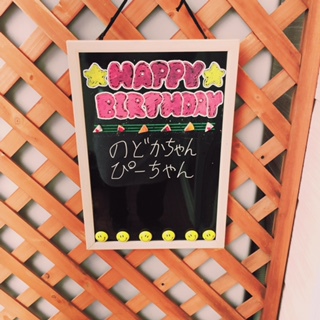 HAPPY
BIRTHDAY
のどかちゃん
ぴーちゃん